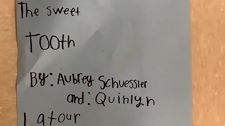 The sweet
TOOth
By: Aubrey Schuessler
and: Quinlyn
Latour